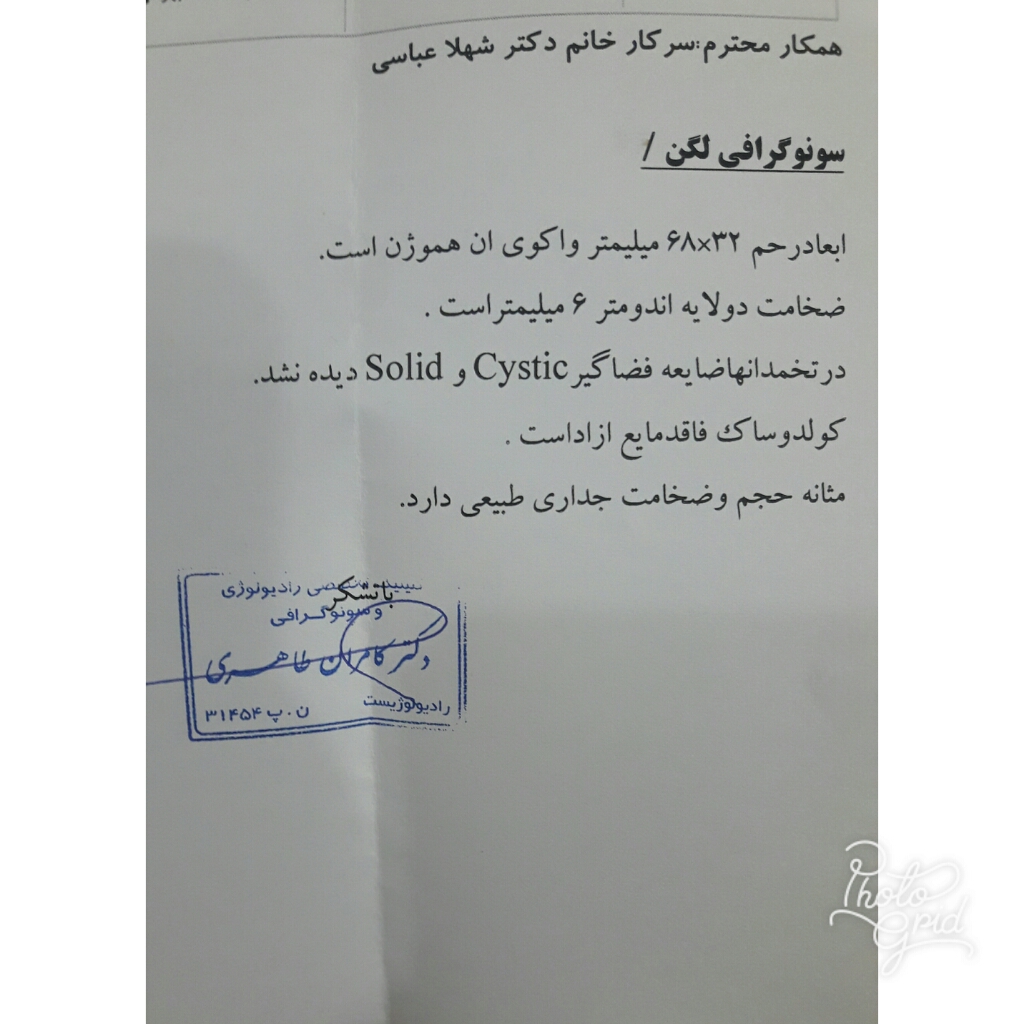 همکار محترم:سرکار خانم دکتر شهلا عباسی
سونوگرافی لگن /
ابعادرحم ۳۲×۶۸ میلیمتر واکوی ان هموژن است.
ضخامت دولایه اندومتر ۶ میلیمتراست .
درتخمدانهاضایعه فضاگیر Cystic و Solid دیده نشد.
کولدوساک فاقدمایع ازاداست .
مثانه حجم وضخامت جداری طبیعی دارد.
باتشکر
رادیولوژی
و سونوگرافی
دکتر کامران طاهری
رادیولوژیست
ن.پ ۳۱۴۵۴
Photo
Grid